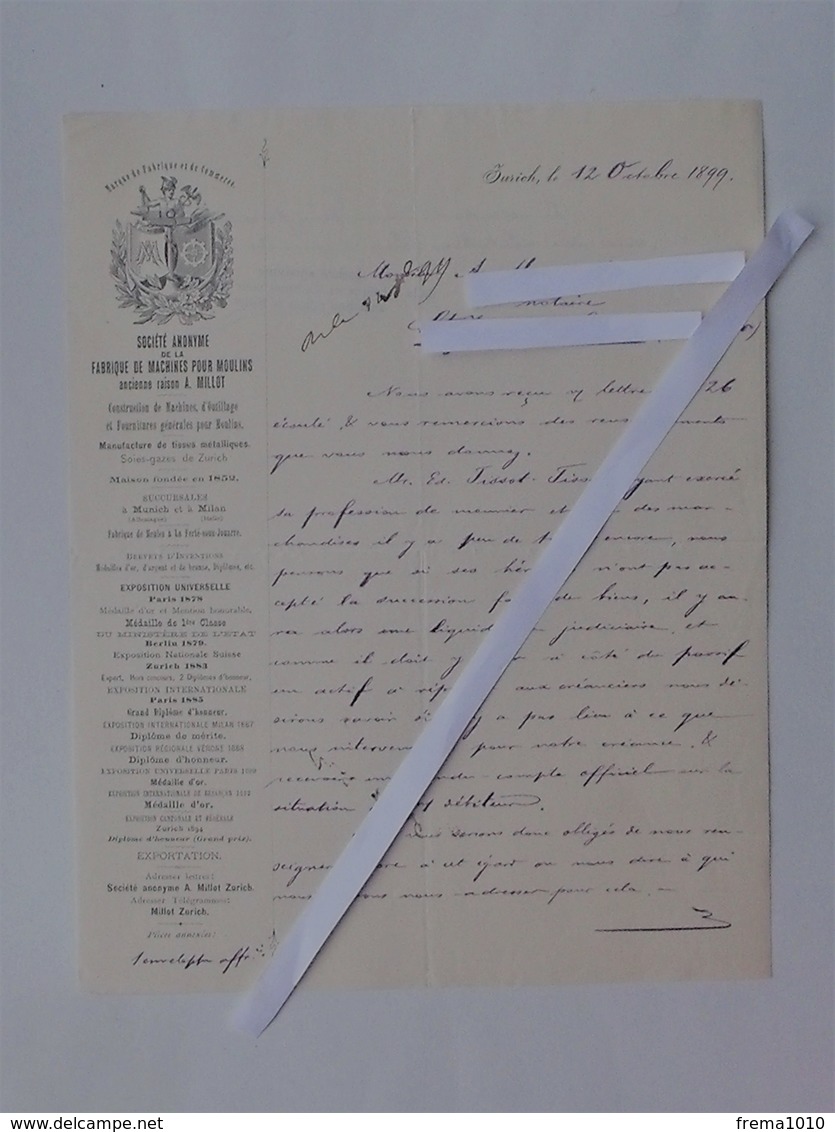 Marque de Fabrique et de Commerce.
SOCIÉTÉ ANONYME
DE LA
FABRIQUE DE MACHINES POUR MOULINS
ancienne raison A. MILLOT
Construction de Machines, d'Outillage
et Fournitures générales pour Moulins.
Manufacture de tissus métalliques.
Soies-gazes de Zurich
Maison fondée en 1852.
SUCCURSALES
à Munich et à Milan
(Allemagne) (Italie)
Fabrique de Meules à La Ferté-sous-Jouarre.
BREVETS D'INVENTIONS
Médailles d'or, d'argent et de bronze, Diplômes, etc.
EXPOSITION UNIVERSELLE
Paris 1878
Médaille d'or et Mention honorable.
Médaille de 1ère Classe
DU MINISTÈRE DE L'ETAT
Berlin 1879.
Exposition Nationale Suisse
Zurich 1883
Expert, Hors concours, 2 Diplômes d'honneur,
EXPOSITION INTERNATIONALE
Paris 1885
Grand Diplôme d'honneur.
EXPOSITION INTERNATIONALE MILAN 1887
Diplôme de mérite.
EXPOSITION RÉGIONALE VÉRONE 1888
Diplôme d'honneur.
EXPOSITION UNIVERSELLE PARIS 1889
Médaille d'or.
EXPOSITION INTERNATIONALE DE BESANÇON
Médaille d'or.
EXPOSITION CANTONALE ET FÉDÉRALE
Zurich 1894
Diplôme d'honneur (Grand prix).
EXPORTATION.
Adresser lettres:
Société anonyme A. Millot Zurich.
Adresser Télégrammes:
Millot Zurich.
Pièces annexées:
1 enveloppe affr.
Zurich, le 12 Octobre 1899.
notaire
Nous avons reçu v/ lettre 26
écoulé & vous remercions des rens ements
que vous nous donnez.
Mr. Ed. Tissot-Tiss yant exercé
sa profession de meunier et des mar-
chandises il y a peu de t encore, nous
pensons que si ses hér n'ont pas ac-
cepté la succession f de biens, il y au-
ra alors une liquid judiciaire et
comme il doit y à côté du passif
un actif à rép aux créanciers nous dé-
sirons savoir s' y a pas lieu à ce que
nous interven pour notre créance &
recevoir un ndu-compte officiel sur la
situation débiteur.
serions donc obligés de nous ren-
seigner à cet égard ou nous dire à qui
nous ons nous adresser pour cela. -
delcampe.net
frema1010